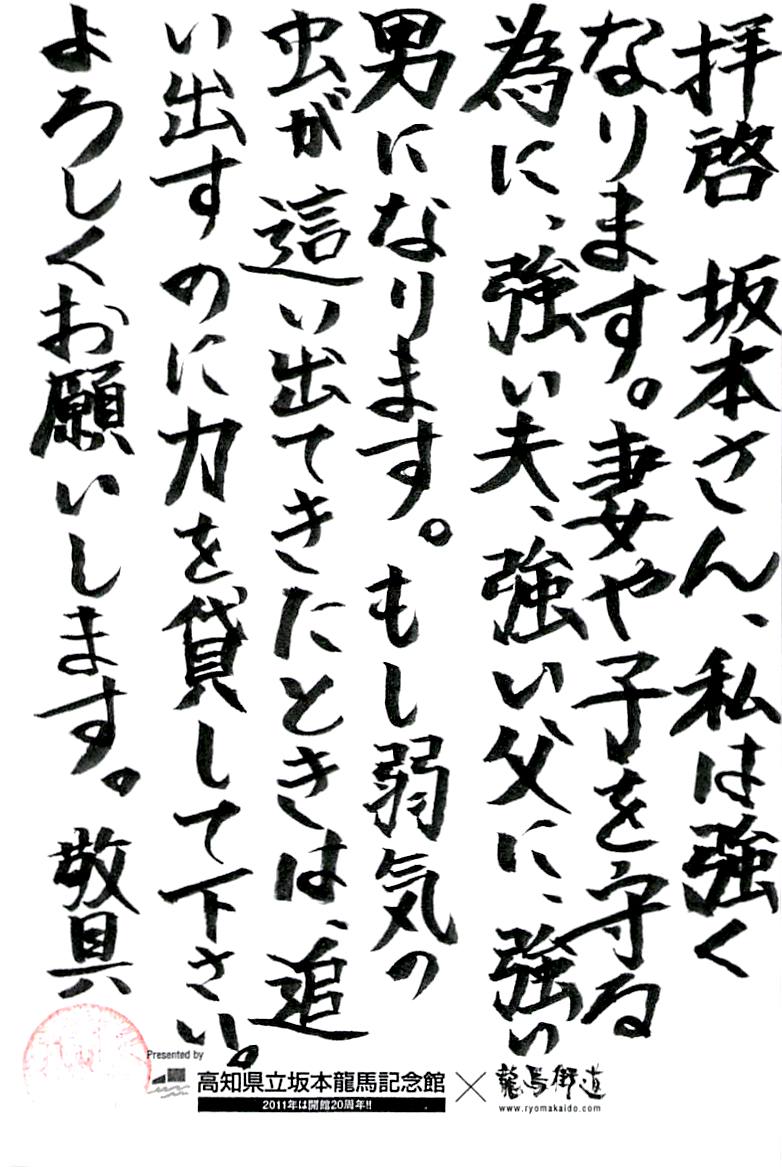 拝啓　坂本さん、私は強く
なります。妻や子を守る
為に、強い夫、強い父に、強い
男になります。もし弱気の
虫が這い出てきたときは、追
い出すのに力を貸して下さい。
よろしくお願いします。　敬具
Presented by
高知県立坂本龍馬記念館
2011年は開館20周年!!
×
龍馬街道
www.ryomakaido.com